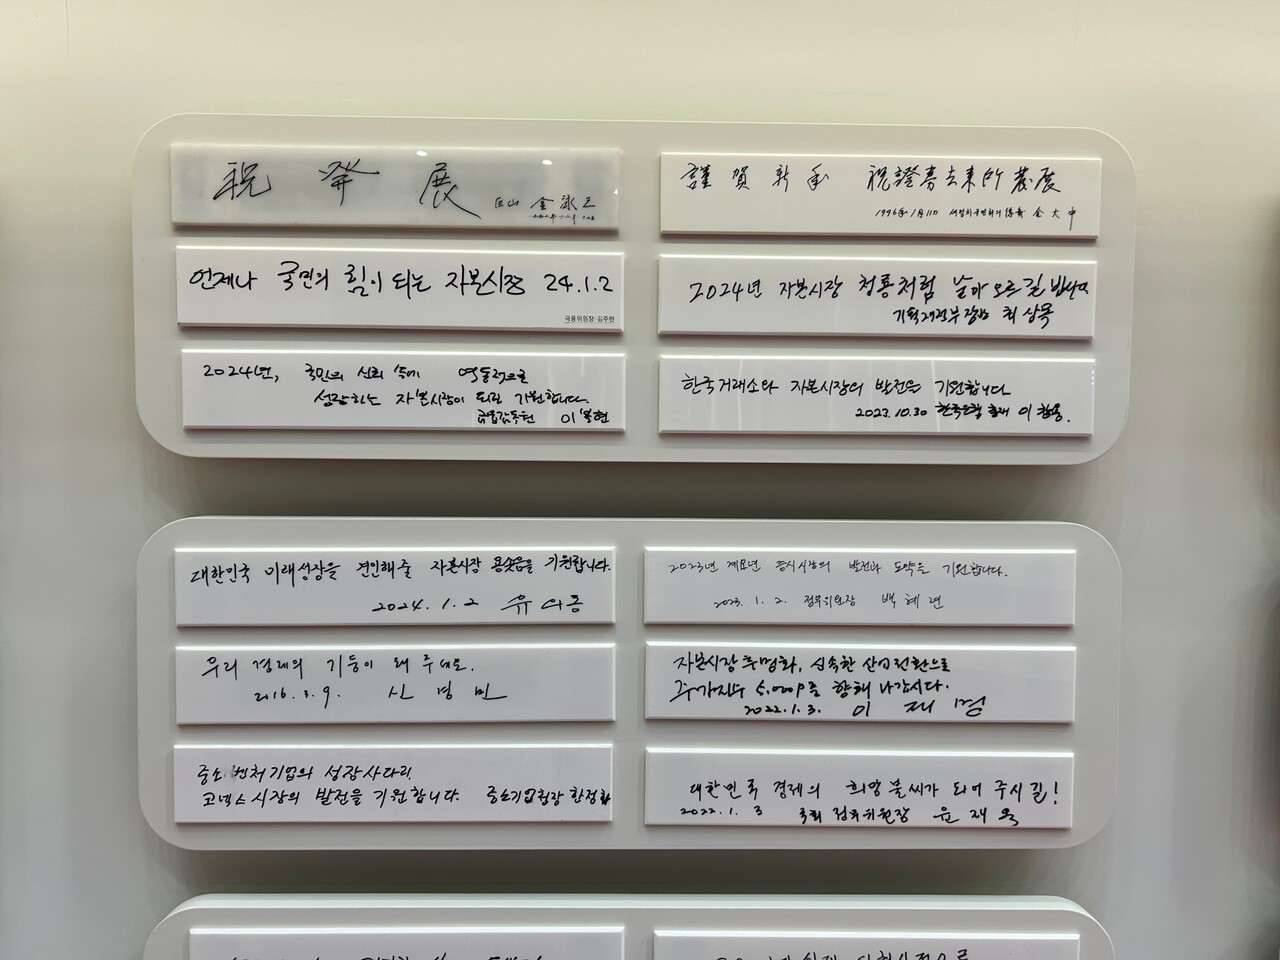 祝 發 展 巨山 金泳三
謹賀新年 祝證券去來所 發展
1996年 1月 11日 새정치국민회의 總裁 金大中
언제나 국민의 힘이 되는 자본시장 24.1.2
금융위원장 김주현
2024년 자본시장 청룡처럼 날아오르길 바랍니다
기획재정부장관 최상목
2024년, 국민의 신뢰 속에 역동적으로
성장하는 자본시장이 되길 기원합니다.
금융감독원 이복현
한국거래소와 자본시장의 발전을 기원합니다
2023.10.30 한국은행 총재 이창용.
대한민국 미래성장을 견인해줄 자본시장 용솟음을 기원합니다.
2024.1.2 유의동
2023년 계묘년 증시시장의 발전과 도약을 기원합니다.
2023. 1. 2. 정무위원장 백혜련
우리 경제의 기둥이 돼 주세요.
2016. 3. 9. 신경민
자본시장 투명화, 신속한 산업전환으로
주가지수 5,000P를 향해 나갑시다.
2022.1.3. 이재명
중소·벤처기업의 성장사다리,
코넥스시장의 발전을 기원합니다. 중소기업청장 한정화
대한민국 경제의 희망불씨가 되어 주시길!
2022.1.3 국회 정무위원장 윤재옥